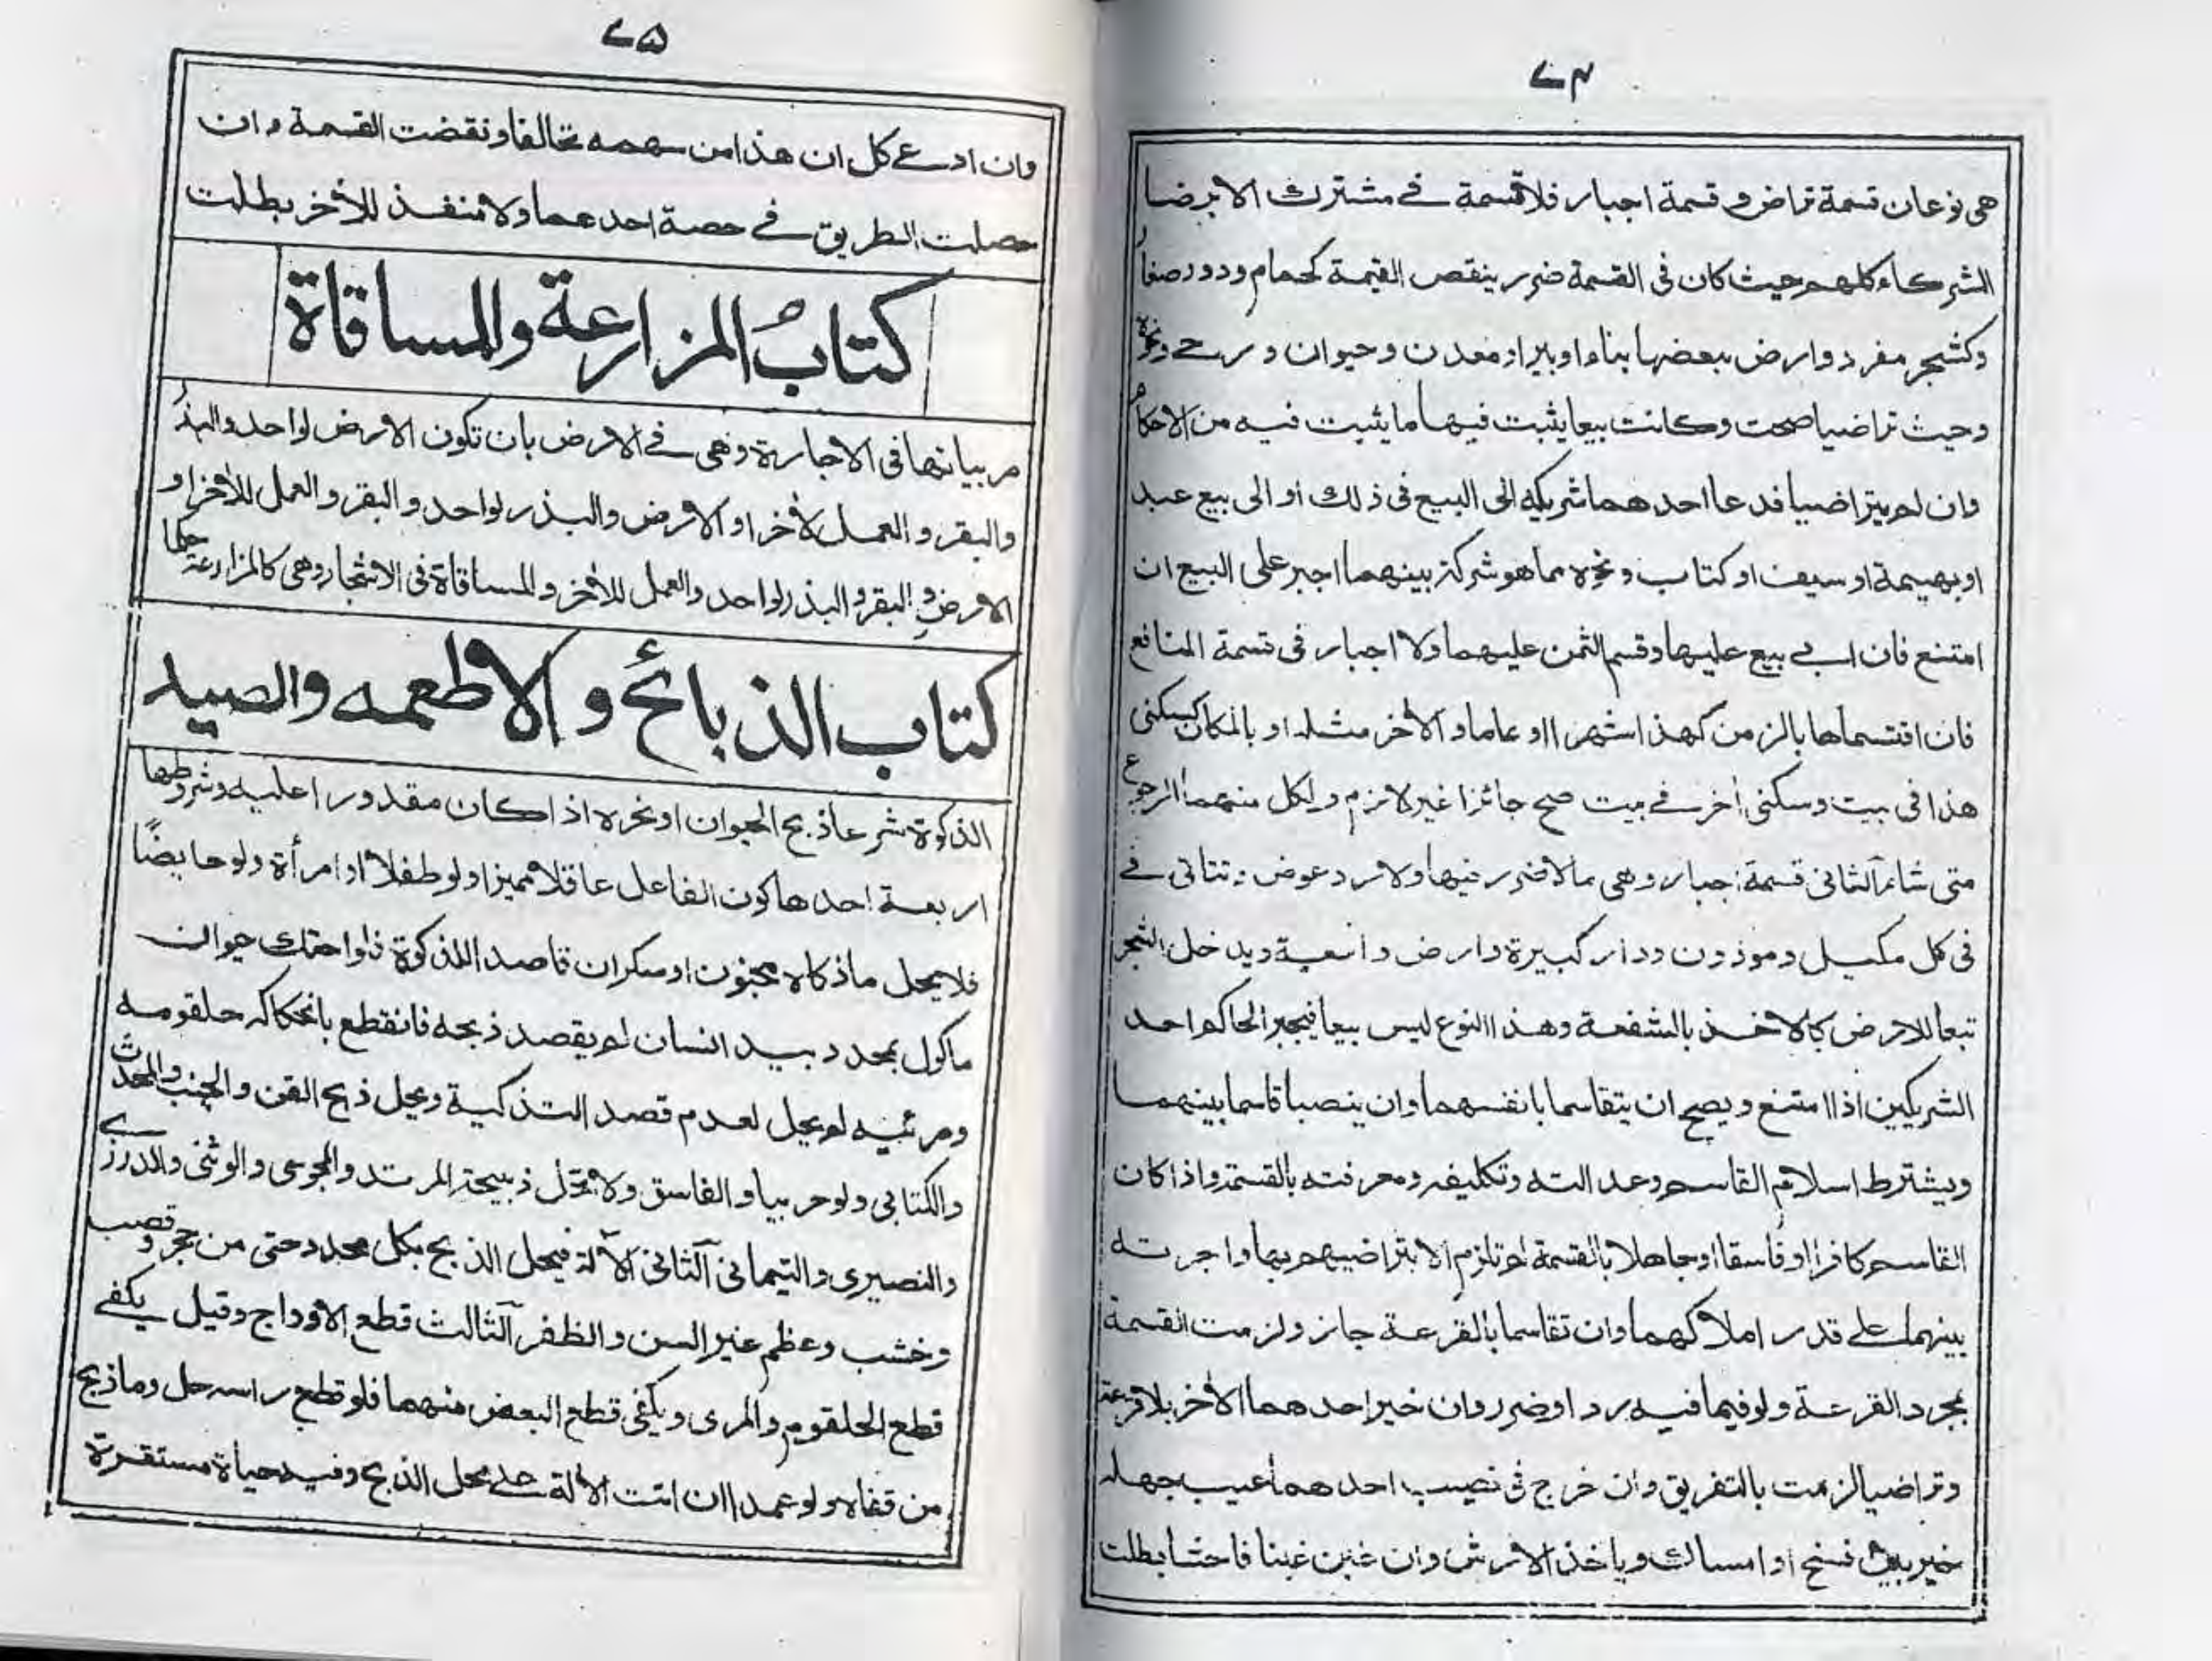 ٧٤
هى نوعان قسمة تراض وقسمة اجبار فلا قسمة فے مشترك الا برضا
الشركاء كلهم حيث كان فى القسمة ضرر ينقص القيمة كحمام ودور صغار
وكشجر مفرد وارض ببعضها بناء او بير او معدن وحيوان ورحے ونحوه
وحيث تراضيا صحت وكانت بيعا يثبت فيها ما يثبت فيه من الاحكام
وان لم يتراضيا فدعا احدهما شريكه الى البيع فى ذلك او الى بيع عبد
او بهيمة او سيف او كتاب ونحوه مما هو شركة بينهما اجبر على البيع ان
امتنع فان ابے بيع عليها وقسم الثمن عليهما ولا اجبار فى قسمة المنافع
فان اقتسماها بالزمن كهذا شهرا او عاما والأخر مثله او بالمكان كسكنى
هذا فى بيت وسكنى أخر فے بيت صح جائزا غير لازم ولكل منهما الرجوع
متى شاء الثانى قسمة اجبار وهى ما لا ضرر فيها ولا رد عوض وتتاتى فے
فى كل مكيل وموزون ودار كبيرة وارض واسعة ويدخل الشجر
تبعا للارض كالاخذ بالشفعة وهذا النوع ليس بيعا فيجبر الحاكم احد
الشريكين اذا امتنع ويصح ان يتقاسما بانفسهما وان ينصبا قاسما بينهما
ويشترط اسلام القاسم وعدالته وتكليفه ومعرفته بالقسمة واذا كان
القاسم كافرا او فاسقا او جاهلا بالقسمة لم تلزم الا بتراضيهم بها واجرته
بينهما علے قدر املاكهما وان تقاسما بالقرعة جاز ولزمت القسمة
بمجرد القرعة ولو فيما فيه رد او ضرر وان خير احدهما الأخر بلا قرعة
وتراضيا لزمت بالتفريق وان خرج فى نصيب احدهما عيب جهله
خير بين فسخ او امساك وياخذ الارش وان غبن غبنا فاحشا بطلت
٧٥
وان ادعے كل ان هذا من سهمه تحالفا ونقضت القسمة وان
حصلت الطريق فے حصة احدهما ولا منفذ للأخر بطلت
كتابُ المزارعة والمساقاة
مر بيانها فى الاجارة وهى فے الارض بان تكون الارض لواحد والبذر
والبقر والعمل لأخر او الارض والبذر لواحد والبقر والعمل للأخر او
الارض والبقر والبذر لواحد والعمل للأخر والمساقاة فى الاشجار وهى كالمزارعة حكما
كتاب الذبائح والاطعمه والصيد
الذكوة شرعا ذبح الحيوان او نحره اذا كان مقدورا عليه وشروطها
اربعة احدها كون الفاعل عاقلا مميزا ولو طفلا او امرأة ولو حايضًا
فلا يحل ماذكاه مجنون او سكران قاصدا للذكوة فلو احتك حيوان
ماكول بمحدد بيد انسان لم يقصد ذبحه فانقطع بانحكاكه حلقومه
ومرئيه لم يحل لعدم قصد التذكية ويحل ذبح القن والجنب والمحدث
والكتابى ولو حربيا والفاسق ولا تحل ذبيحة المرتد والمجوسى والوثنى والدرزے
والنصيرى والتيمانى الثانى الآلة فيحل الذبح بكل محدد حتى من حجر وقصب
وخشب وعظم غير السن والظفر الثالث قطع الاوداج وقيل يكفے
قطع الحلقوم والمرى ويكفى قطع البعض منهما فلو قطع راسه حل وما ذبح
من قفاه ولو عمدا ان اتت الألة علے محل الذبح وفيه حياة مستقرة